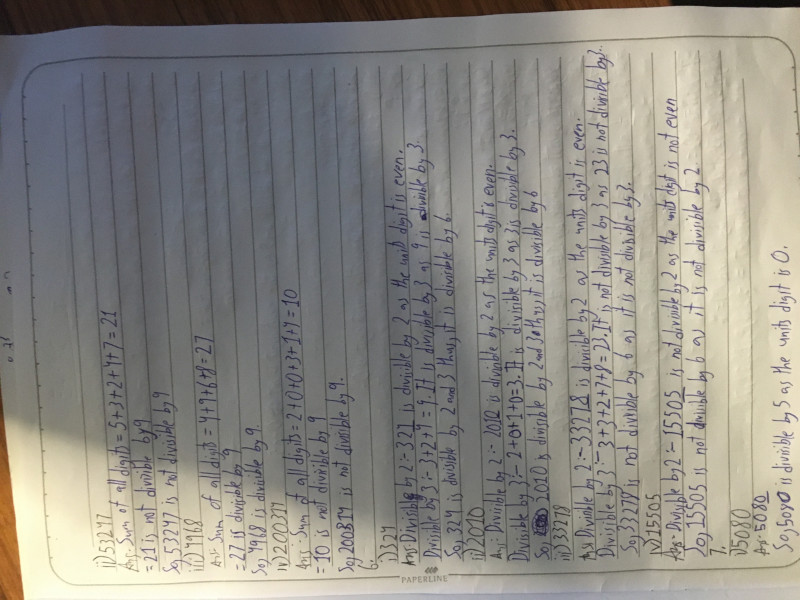 ii) 53247
Ans:- Sum of all digits = 5+3+2+4+7 = 21
= 21 is not divisible by 9
So, 53247 is not divisible by 9
iii) 4968
Ans:- Sum of all digits = 4+9+6+8 = 27
= 27 is divisible by 9
So, 4968 is divisible by 9.
iv) 200314
Ans:- Sum of all digits = 2+0+0+3+1+4 = 10
= 10 is not divisible by 9
So, 200314 is not divisible by 9.
6.
i) 324
Ans Divisible by 2:- 324 is divisible by 2 as the units digit is even.
Divisible by 3:- 3+2+4 = 9. It is divisible by 3 as 9 is divisible by 3.
So, 324 is divisible by 2 and 3 thus, it is divisible by 6.
ii) 2010
Ans:- Divisible by 2:- 2010 is divisible by 2 as the units digit is even.
Divisible by 3:- 2+0+1+0=3. It is divisible by 3 as 3 is divisible by 3.
So, 2010 is divisible by 2 and 3 thus, it is divisible by 6
iii) 33278
Ans Divisible by 2:- 33278 is divisible by 2 as the units digit is even.
Divisible by 3:- 3+3+2+7+8=23. It is not divisible by 3 as 23 is not divisible by 3.
So, 33278 is not divisible by 6 as it is not divisible by 3.
iv) 15505
Ans:- Divisible by 2:- 15505 is not divisible by 2 as the units digit is not even
So, 15505 is not divisible by 6 as it is not divisible by 2
7.
i) 5080
Ans:- 5080
So, 5080 is divisible by 5 as the units digit is 0.
PAPERLINE